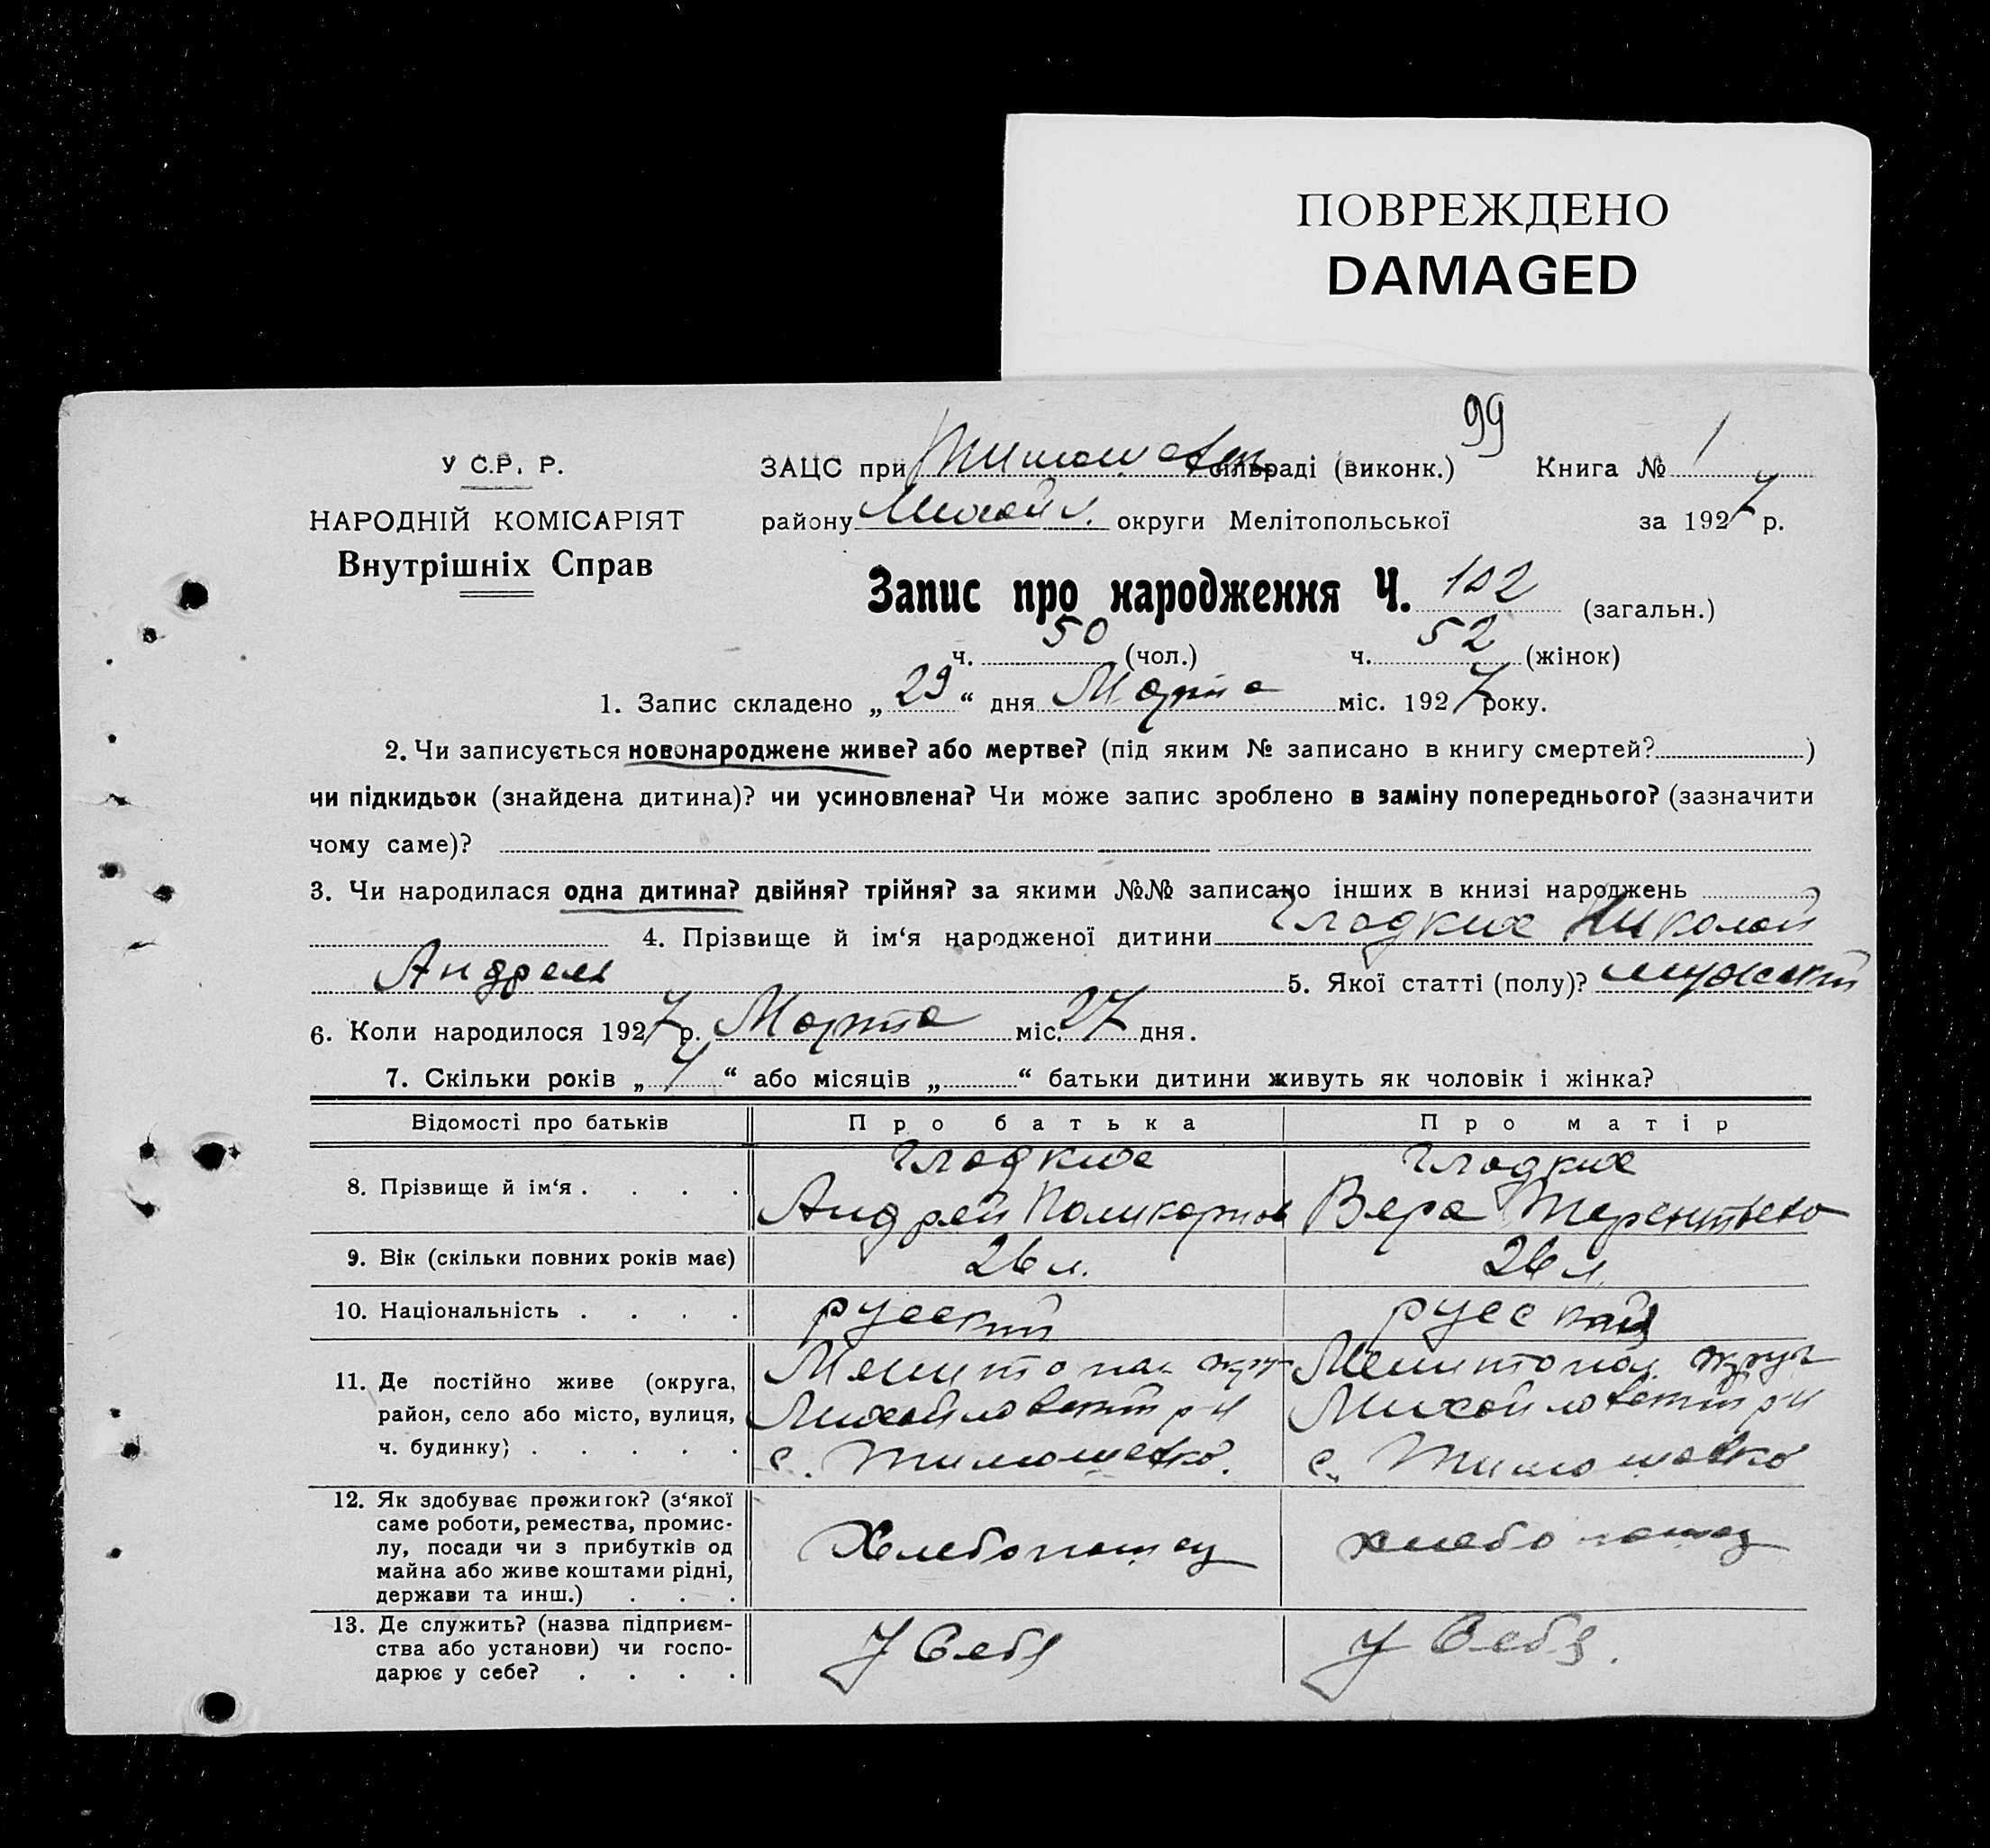 ПОВРЕЖДЕНО
DAMAGED
99
У С.Р. Р.
НАРОДНІЙ КОМІСАРІЯТ
Внутрішніх Справ
ЗАЦС при Тимошевск сільраді (виконк.) Книга № 1
району Михайл. округи Мелітопольської за 1927 р.
Запис про народження Ч. 102 (загальн.)
ч. 50 (чол.) ч. 52 (жінок)
1. Запис складено „29“ дня Марта міс. 1927 року.
2. Чи записується новонароджене живе? або мертве? (під яким № записано в книгу смертей? )
чи підкидьок (знайдена дитина)? чи усиновлена? Чи може запис зроблено в заміну попереднього? (зазначити
чому саме)?
3. Чи народилася одна дитина? двійня? трійня? за якими №№ записано інших в книзі народжень
4. Прізвище й ім‘я народженої дитини Гладких Николай
Андреев 5. Якої статті (полу)? мужский
6. Коли народилося 1927 р. Марта міс. 27 дня.
7. Скільки років „7“ або місяців „ “ батьки дитини живуть як чоловік і жінка?
Відомості про батьків Про батька Про матір
8. Прізвище й ім‘я . . . . Гладких Андрей Поликарпов Гладких Вера Терентьева
9. Вік (скільки повних років має) 26 л. 26 л.
10. Національність . . . . русский русская
11. Де постійно живе (округа, Мелитопол округ Мелитопол округ
район, село або місто, вулиця, Михайловский р-н Михайловский р-н
ч. будинку) . . . . . с. Тимошевка. с. Тимошовка
12. Як здобуває прожиток? (з‘якої
саме роботи, ремества, промис-
лу, посади чи з прибутків од Хлебопашец хлебопашец
майна або живе коштами рідні,
держави та инш.) . . .
13. Де служить? (назва підприєм-
ства або установи) чи госпо- У Себя У Себя.
дарює у себе? . . . .